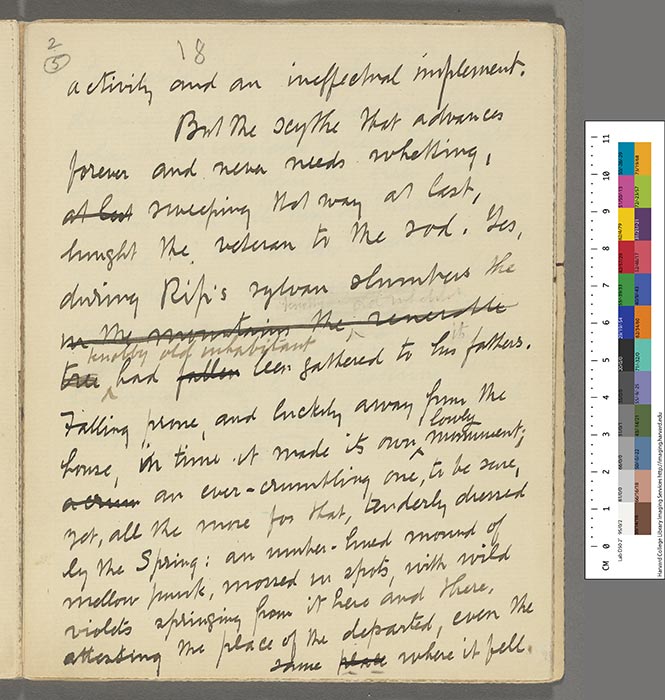 2
5
18
activity and an ineffectual implement.
But the scythe that advances
forever and never needs whetting,
at last sweeping that way at last,
brought the veteran to the sod. Yes,
during Rip's sylvan slumbers the
in the mountains the venerable
knobby old inhabitant its
tree had fallen been gathered to his fathers.
Falling prone, and luckily away from the
lowly
house, in time it made its own monument;
a crum an ever-crumbling one, to be sure,
yet, all the more for that, tenderly dressed
by the Spring: an umber-hued mound of
mellow punk, mossed in spots, with wild
violets springing from it here and there,
attesting the place of the departed, even the
same place where it fell.
CM 0 1 2 3 4 5 6 7 8 9 10 11
Harvard College Library Imaging Services http://imaging.harvard.edu